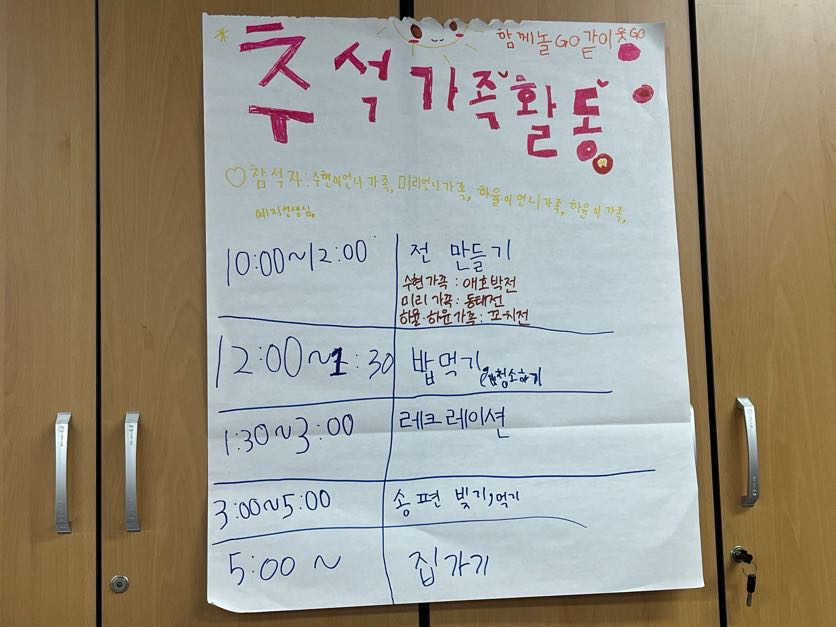 함께놀GO같이웃GO
추석가족활동
♡참석자:수현이언니가족, 미리언니가족, 하율이언니가족, 하윤이가족,
예지선생님,
10:00~12:00 전 만들기
수현가족:애호박전
미리가족:동태전
하율·하윤가족:꼬치전
12:00~1:30 밥먹기, 청소하기
1:30~3:00 레크레이션
3:00~5:00 송편 빚기, 먹기
5:00~ 집가기